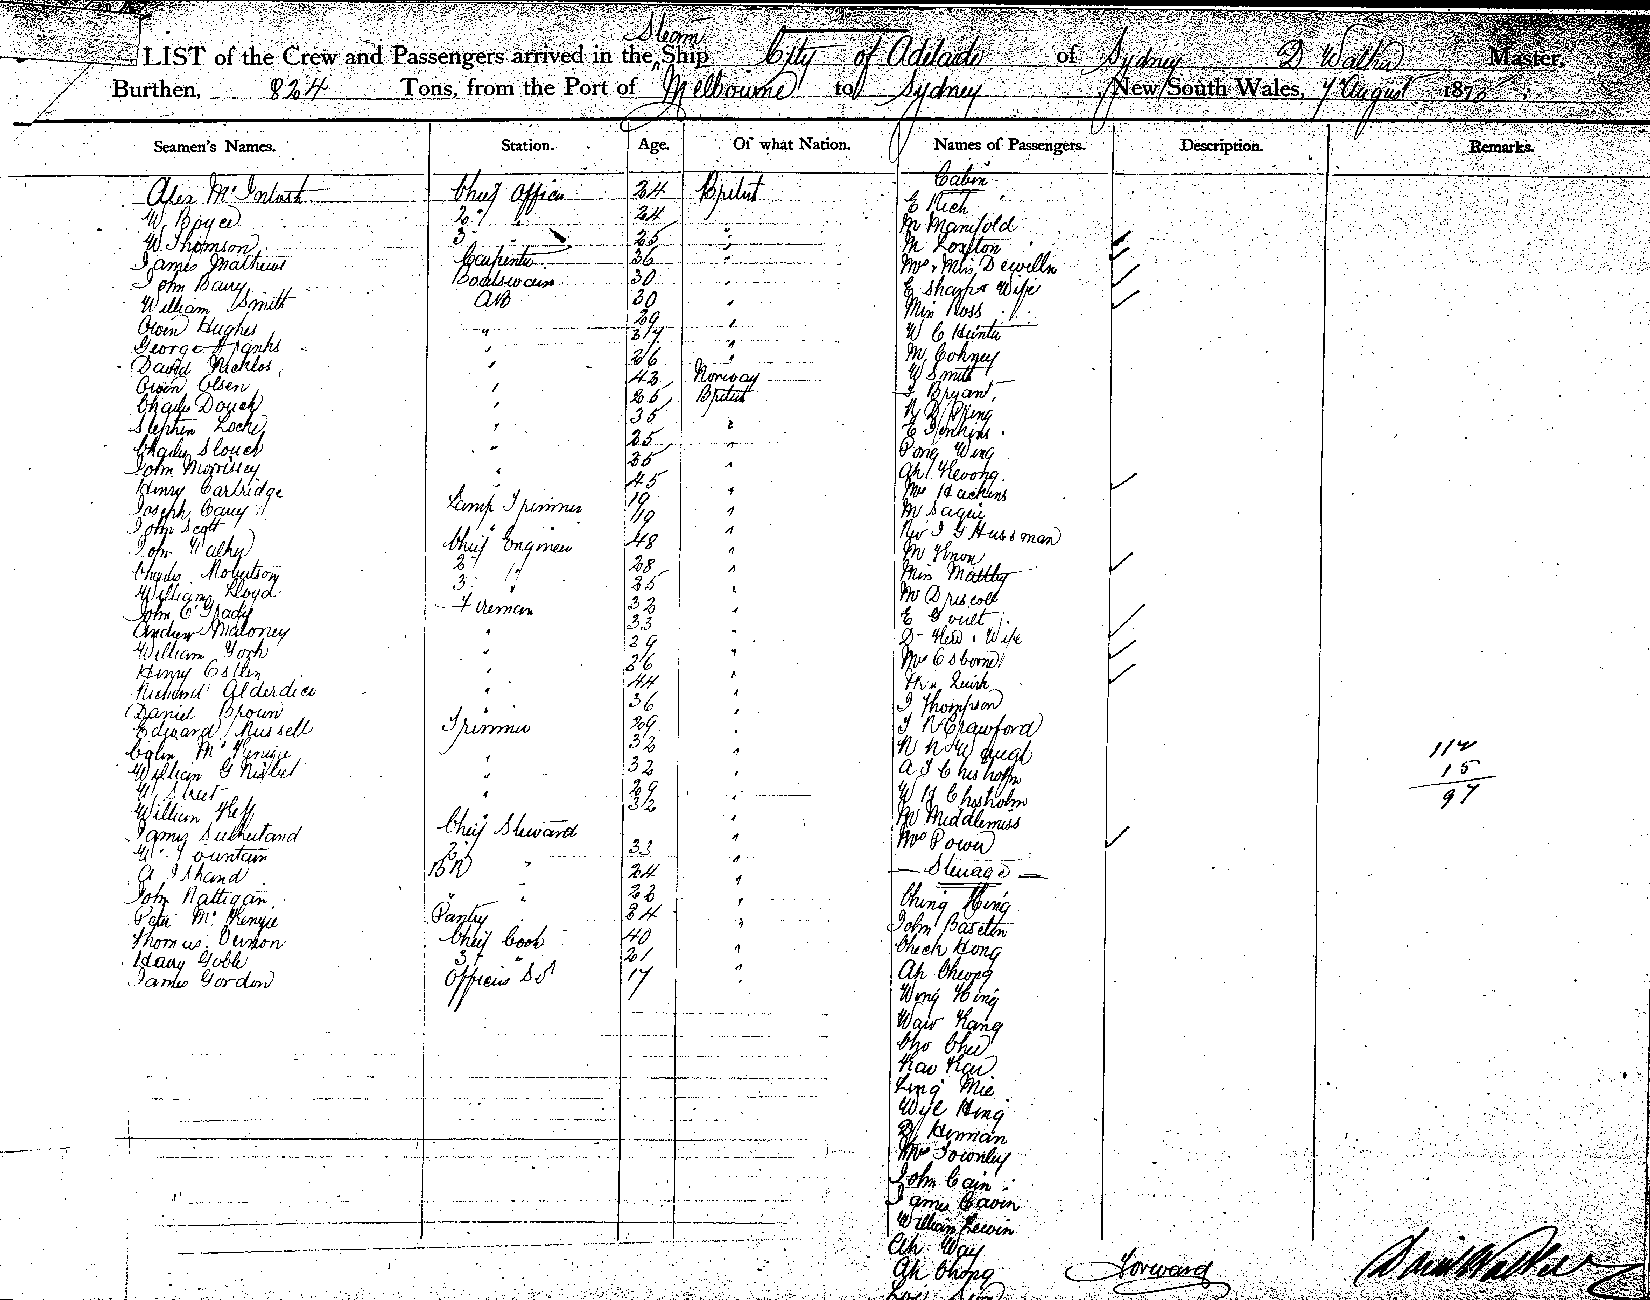 LIST of the Crew and Passengers arrived in the Steam Ship City of Adelaide of Sydney D Walker Master,
Burthen, 824 Tons, from the Port of Melbourne to Sydney New South Wales, 7 August 187
Seamen's Names. Station. Age. Of what Nation. Names of Passengers. Description. Remarks.
Cabin
Alex McIntosh Chief Officer 24 British
E Rich
W. Boyce 2nd " 24
M Manifold
W Thomson 3 " 25 "
M Loxton
James Mathews Carpenter 36 "
Mrs & Miss Dewilln
John Barry Boatswain 30 "
E Sharp & Wife
William Smith AB 30 "
Miss Ross
Owen Hughes " 29 "
W C Hunter
George Franks " 37 "
M Cohney
David Nicklos " 26 "
W Smith
Owen Olsen " 43 Norway
J Bryant
Charles Douch " 25 British
R D King
Stephen Locke " 35 "
E Jenkins
Charles Slouch " 25 "
Pong Wing
John Morrissey " 25 "
Ah Kevong
Henry Cartridge " 45 "
Mrs Hackins
Joseph Carey Lamp Trimmer 19 "
M Sagui
John Scott " 19 "
Rev J G Hussman
John Walker Chief Engineer 48 "
M Knon
Charles Robertson 2 " 28 "
Miss Maltby
William Lloyd 3 " 25 "
Mr Driscoll
John O'Grady Fireman 32 "
E Goult
Andrew Maloney " 33 "
D Hew & Wife
William York " 29 "
Mrs Osborne
Henry Estlin " 26 "
Quirk
Richard Alderdice " 44 "
J Thompson
Daniel Brown " 36 "
J R Crawford
Edward Russell Trimmer 29 "
Colin McKenzie " 32 "
A J Chisholm
William G Nisbet " 32 "
W H Chisholm
W Street " 29 "
Mr Middlemiss
William 32
Mrs Power
James Sutherland Chief Steward "
W Fountain 2 " 33 "
— Steerage —
A Shand BR " 24 "
Ching Hing
John Rattigan " " 23 "
John Baselin
Peter McKenzie Pantry 34 "
Cheek Hong
Thomas Vernon Chief Cook 40 "
Ah Cheong
Harry Goble 3 " 21 "
Wong Hing
James Gordon Officers St 17 "
112
15
97
Waw Kang
Cho Chee
Kaw Kaw
Ling Mie
Wye Hing
D Hennan
Mrs Townley
John Cain
James Gavin
William Lewin
Ah Way
Ah Chong
Forward
David Walker